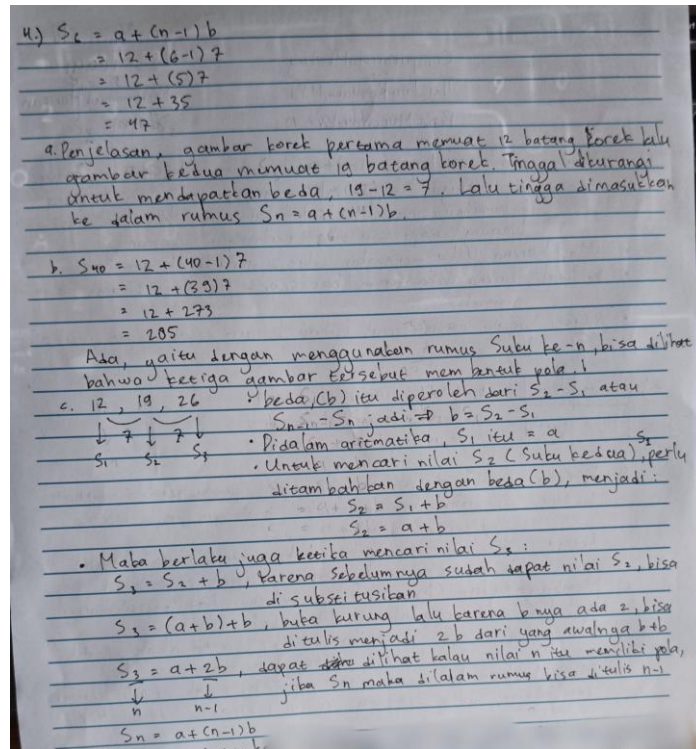 4.) S6 = a + (n-1) b
= 12 + (6-1) 7
= 12 + (5) 7
= 12 + 35
= 47
a. Penjelasan, gambar korek pertama memuat 12 batang korek lalu
gambar kedua memuat 19 batang korek. Tinggal dikurangi
untuk mendapatkan beda, 19 - 12 = 7. Lalu tingga dimasukkan
ke dalam rumus Sn = a + (n-1) b.
b. S40 = 12 + (40-1) 7
= 12 + (39) 7
= 12 + 273
= 285
Ada, yaitu dengan menggunakan rumus Suku ke-n, bisa dilihat
bahwa ketiga gambar tersebut membentuk pola.
c. 12, 19, 26 • beda, (b) itu diperoleh dari S2 - S1 atau
7 7 Sn-1 - Sn jadi ⇒ b = S2 - S1
↓ ↓ ↓ • Didalam aritmatika, S1 itu = a
S1 S2 S3 • Untuk mencari nilai S2 (Suku kedua), perlu
ditambahkan dengan beda (b), menjadi:
S2 = S1 + b
S2 = a + b
• Maka berlaku juga ketika mencari nilai S3 :
S3 = S2 + b, karena sebelumnya sudah dapat nilai S2, bisa
di substitusikan
S3 = (a+b) + b, buka kurung lalu karena b nya ada 2, bisa
ditulis menjadi 2b dari yang awalnya b+b
S3 = a + 2b, dapat dilihat kalau nilai n itu memiliki pola,
↓ ↓ jika Sn maka didalam rumus bisa ditulis n-1
n n-1
Sn = a + (n-1) b